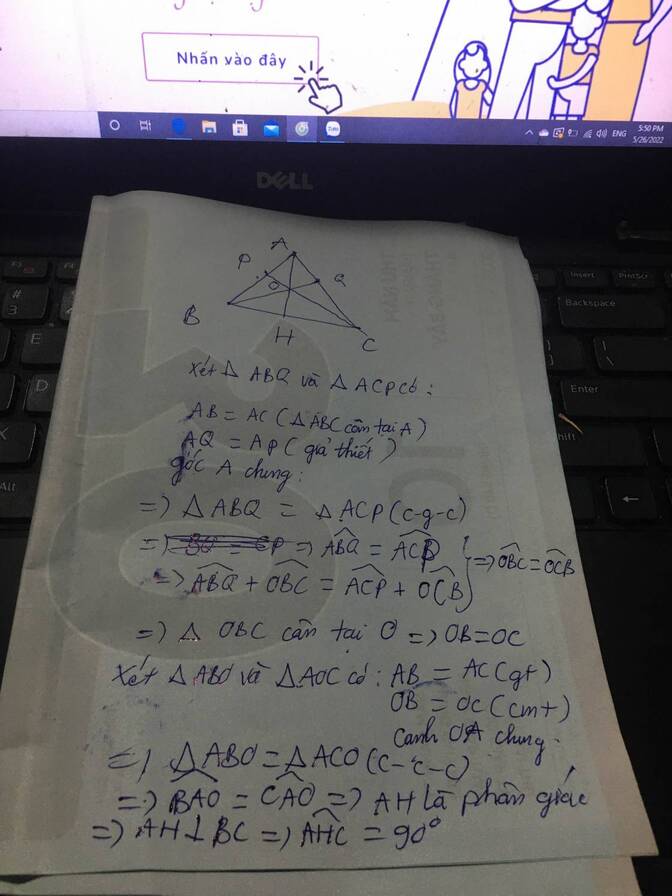 Nhấn vào đây
ENG
5:50 PM
5/26/2022
Zalo
DELL
Insert
PrtScr
Backspace
Enter
#
3
E
D
Alt
A
P
Q
O
B
H
C
Xét Δ ABQ và Δ ACP có:
AB = AC (Δ ABC cân tại A)
AQ = AP (giả thiết)
góc A chung:
=> Δ ABQ = Δ ACP (c-g-c)
=> BQ = CP => ABQ^ = ACP^
=> ABQ^ + OBC^ = ACP^ + OCB^ } => OBC^ = OCB^
=> Δ OBC cân tại O => OB = OC
Xét Δ ABO và Δ AOC có: AB = AC (gt)
OB = OC (cmt)
Cạnh OA chung.
=> Δ ABO = Δ ACO (c-c-c)
=> BAO^ = CAO^ => AH là phân giác
=> AH ⊥ BC => AHC^ = 90°